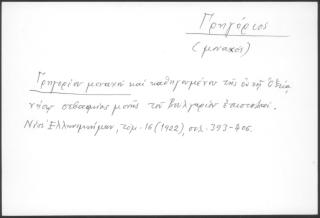 Γρηγόριος
(μοναχός)
Γρηγορίου μοναχοῦ καὶ καθηγουμένου τῆς ἐν τῇ Ὀξείᾳ
νήσῳ σεβασμίας μονῆς τοῦ Βουλγαρίου ἐπιστολαί.
Νέος Ἑλληνομνήμων, τόμ. 16 (1922), σελ. 393-406.